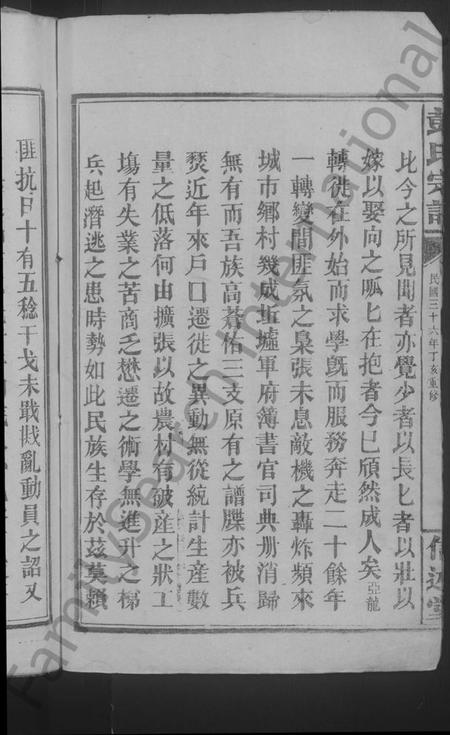 彭氏宗譜
民國三十六年丁亥重修
信述堂
比今之所見聞者亦覺少者以長匕者以壯以
嫁以娶向之呱匕在抱者今已頎然成人矣亞龍
轉徙在外始而求學既而服務奔走二十餘年
一轉變間匪氛之梟張未息敵機之轟炸頻來
城市鄉村幾成坵墟軍府簿書官司典册消歸
無有而吾族高蒼佑三支原有之譜牒亦被兵
燹近年來戶口遷徙之異動無從統計生産數
量之低落何由擴張以故農村有破産之狀工
塲有失業之苦商乏懋遷之術學無進升之梯
兵起潛逃之患時勢如此民族生存於茲莫賴
匪抗日十有五稔干戈未戢戡亂動員之詔又
FamilySearch International